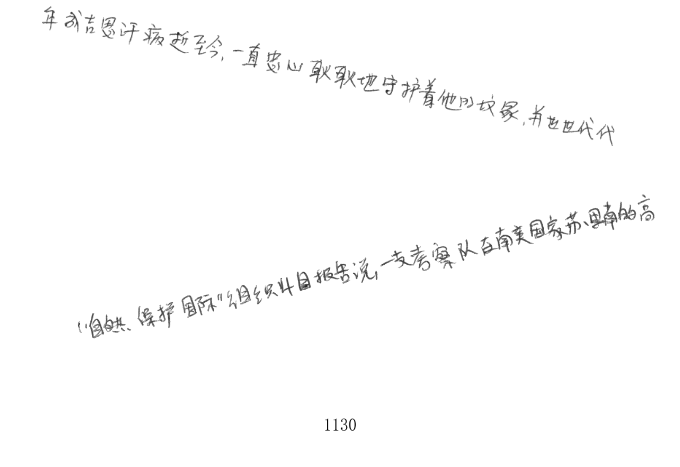 年成吉思汗病逝至今,一直忠心耿耿地守护着他的坟冢,并世世代代
“自然保护国际”组织4日报告说,一支考察队在南美国家苏里南的高
1130